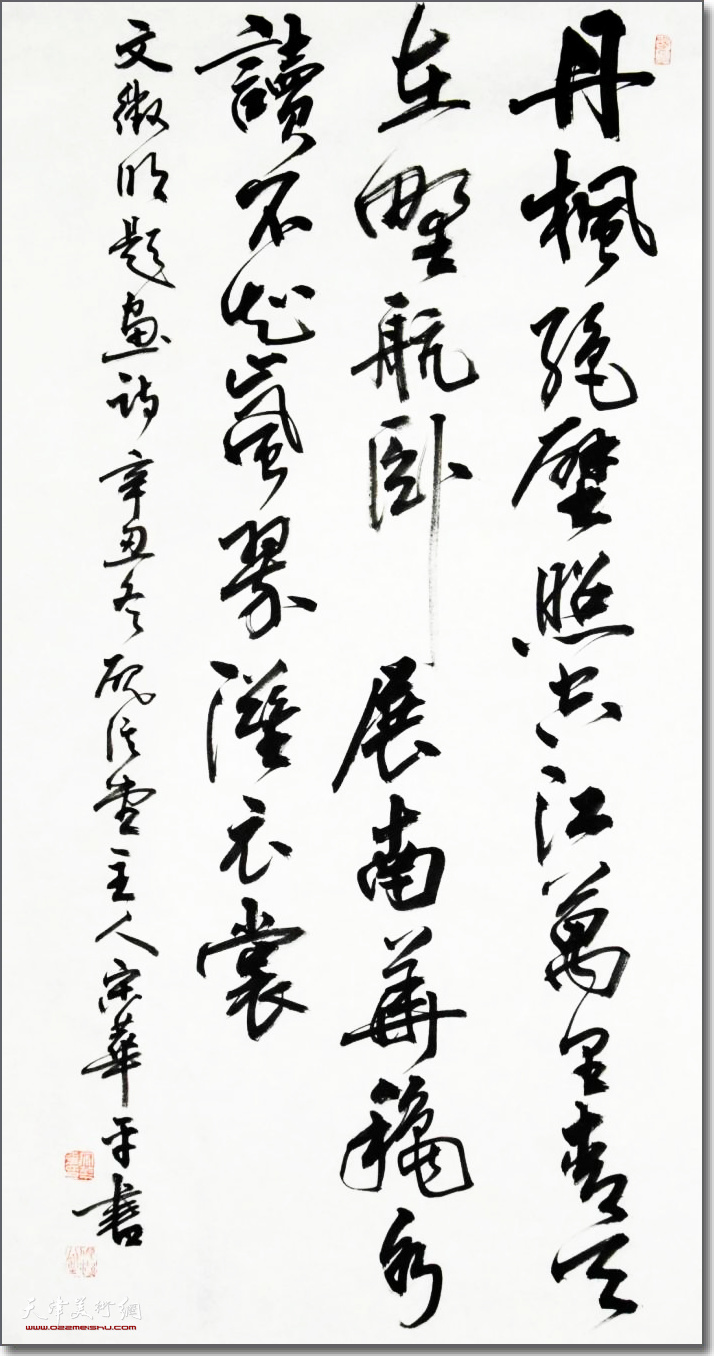 丹楓絕壁照空江萬里青天
在野航卧展南華穐水
讀不知嵐翠濕衣裳
文徵明題畫詩辛丑冬硯堂主人宋華平書
天津美術網
www.022meishu.com